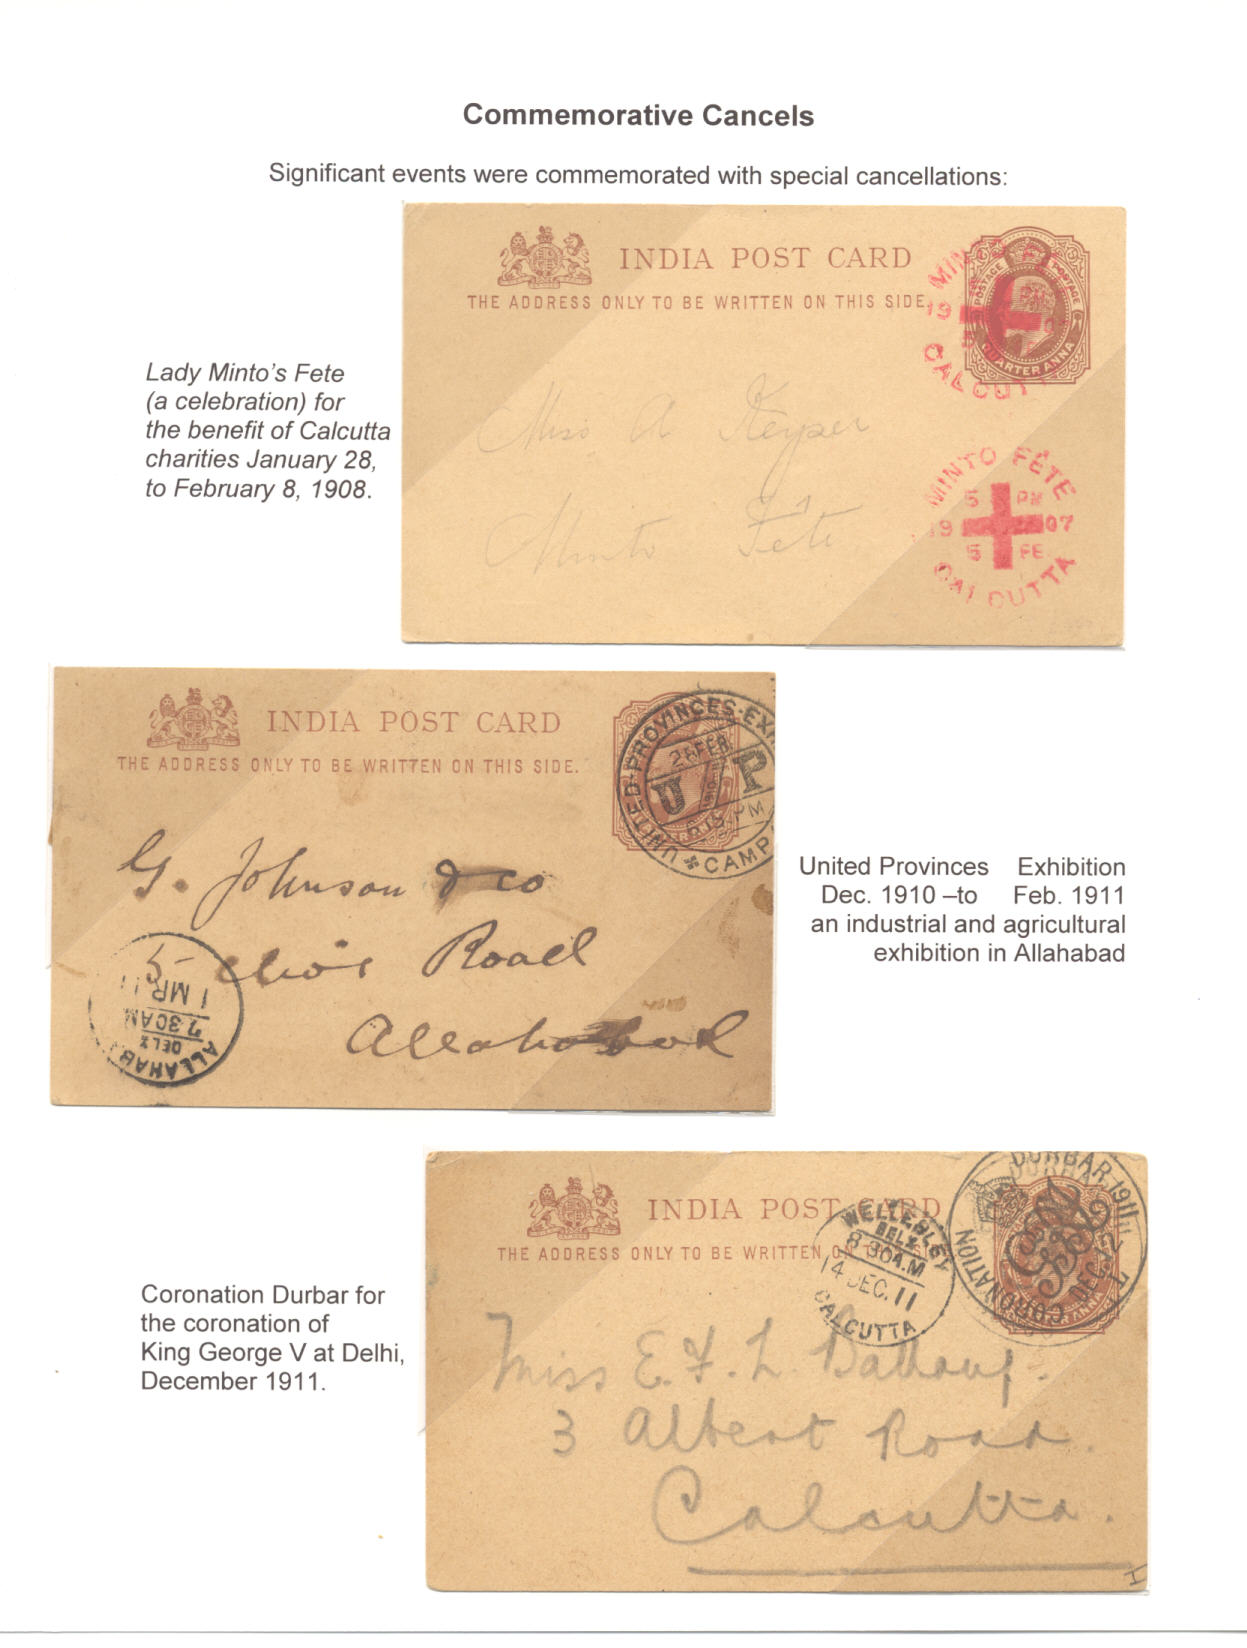 Commemorative Cancels
Significant events were commemorated with special cancellations:
INDIA POST CARD
THE ADDRESS ONLY TO BE WRITTEN ON THIS SIDE.
POSTAGE POSTAGE
QUARTER ANNA
MINTO FÊTE
CALCUTTA
Lady Minto's Fete
(a celebration) for
the benefit of Calcutta
charities January 28,
to February 8, 1908.
Miss A Keyser
Minto Fête
MINTO FÊTE
5 PM
1907
5 FE
CALCUTTA
INDIA POST CARD
THE ADDRESS ONLY TO BE WRITTEN ON THIS SIDE.
UNITED-PROVINCES-EX
26 FEB
U P
1910-11
6.15 PM
CAMP
G. Johnson & co
5 Road
Allahabad
ALLAHAB
DEL
7.30AM
1 MR 11
United Provinces Exhibition
Dec. 1910 –to Feb. 1911
an industrial and agricultural
exhibition in Allahabad
INDIA POST CARD
THE ADDRESS ONLY TO BE WRITTEN ON THIS SIDE
CORONATION DURBAR 1911
DEC. 12
WELLESLEY
DEL
8.30 A.M
14 DEC. 11
CALCUTTA
Coronation Durbar for
the coronation of
King George V at Delhi,
December 1911.
Miss E. F. L.
3 Albert Road.
Calcutta.